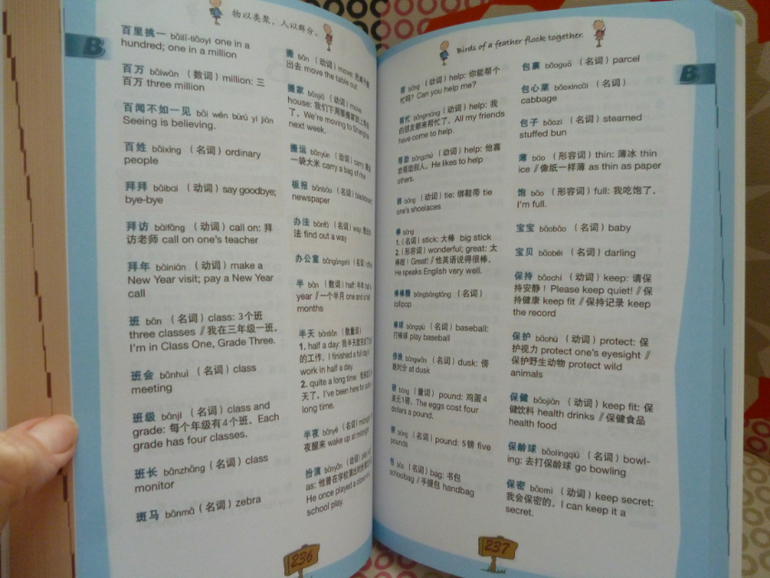 物以类聚，人以群分。
B
百里挑一 bǎilǐ-tiāoyī one in a
hundred; one in a million
百万 bǎiwàn （数词）million: 三
百万 three million
百闻不如一见 bǎi wén bùrú yī jiàn
Seeing is believing.
百姓 bǎixìng （名词）ordinary
people
拜拜 bàibai （动词）say goodbye;
bye-bye
拜访 bàifǎng （动词）call on: 拜
访老师 call on one's teacher
拜年 bàinián （动词）make a
New Year visit; pay a New Year
call
班 bān （名词）class: 3个班
three classes ∥我在三年级一班。
I'm in Class One, Grade Three.
班会 bānhuì （名词）class
meeting
班级 bānjí （名词）class and
grade: 每个年级有4个班。Each
grade has four classes.
班长 bānzhǎng （名词）class
monitor
班马 bānmǎ （名词）zebra
搬 bān （动词）move:
出去 move the table out
搬家 bānjiā （动词）move
house: 我们下周要搬家到上海去
了。We're moving to Shanghai
next week.
搬运 bānyùn （动词）carry
一袋大米 carry a bag of rice
板报 bǎnbào （名词）blackboard
newspaper
办法 bànfǎ （名词）way:
法 find out a way
办公室 bàngōngshì （名词）
半 bàn （数词）half: 半年 half a
year ∥一个半月 one and a half
months
半天 bàntiān （数量词）
1. half a day:
的工作。I finished a full day's
work in half a day.
2. quite a long time:
天了。I've been here for quite a
long time.
半夜 bànyè （名词）midnight:
夜醒来 wake up at midnight
扮演 bànyǎn （动词）play
as: 他曾在学校演出时扮演
He once played a clown in a
school play.
236
Birds of a feather flock together.
B
帮 bāng （动词）help: 你能帮个
忙吗? Can you help me?
帮忙 bāngmáng （动词）help: 我
的朋友都来帮忙了。All my friends
have come to help.
帮助 bāngzhù （动词）help: 他喜
欢帮助别人。He likes to help
others.
绑 bǎng （动词）tie: 绑鞋带 tie
one's shoelaces
棒 bàng
1.（名词）stick: 大棒 big stick
2.（形容词）wonderful; great: 太
棒啦! Great! ∥他英语说得很棒。
He speaks English very well.
棒棒糖 bàngbàngtáng （名词）
lollipop
棒球 bàngqiú （名词）baseball:
打棒球 play baseball
傍晚 bàngwǎn （名词）dusk: 傍
晚时分 at dusk
磅 bàng （量词）pound: 鸡蛋4
美元1磅。The eggs cost four
dollars a pound.
磅 bàng （名词）pound: 5磅 five
pounds
包 bāo （名词）bag: 书包
schoolbag ∥手提包 handbag
包裹 bāoguǒ （名词）parcel
包心菜 bāoxīncài （名词）
cabbage
包子 bāozi （名词）steamed
stuffed bun
薄 báo （形容词）thin: 薄冰 thin
ice ∥像纸一样薄 as thin as paper
饱 bǎo （形容词）full: 我吃饱了。
I'm full.
宝宝 bǎobao （名词）baby
宝贝 bǎobèi （名词）darling
保持 bǎochí （动词）keep: 请保
持安静! Please keep quiet! ∥保
持健康 keep fit ∥保持记录 keep
the record
保护 bǎohù （动词）protect: 保
护视力 protect one's eyesight ∥
保护野生动物 protect wild
animals
保健 bǎojiàn （动词）keep fit: 保
健饮料 health drinks ∥保健食品
health food
保龄球 bǎolíngqiú （名词）bowl-
ing: 去打保龄球 go bowling
保密 bǎomì （动词）keep secret:
我会保密的。I can keep it a
secret.
237